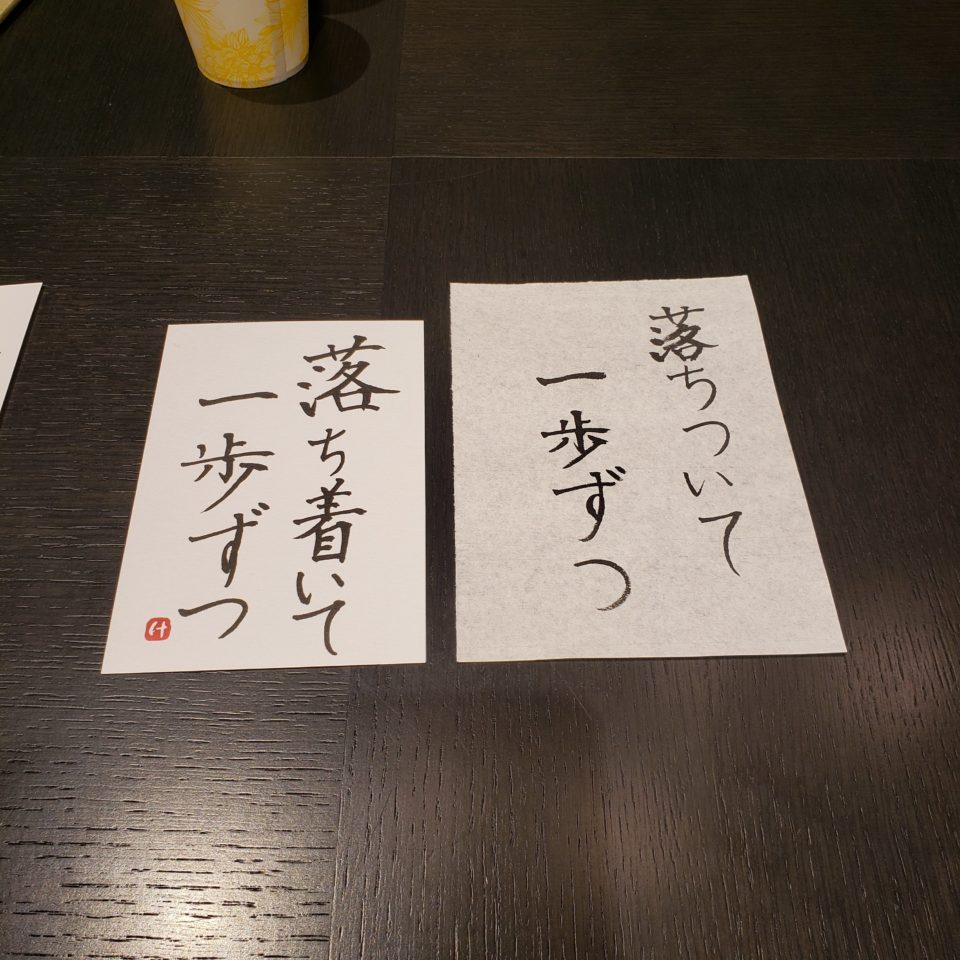 落ち着いて
一歩ずつ
け
落ちついて
一歩ずつ